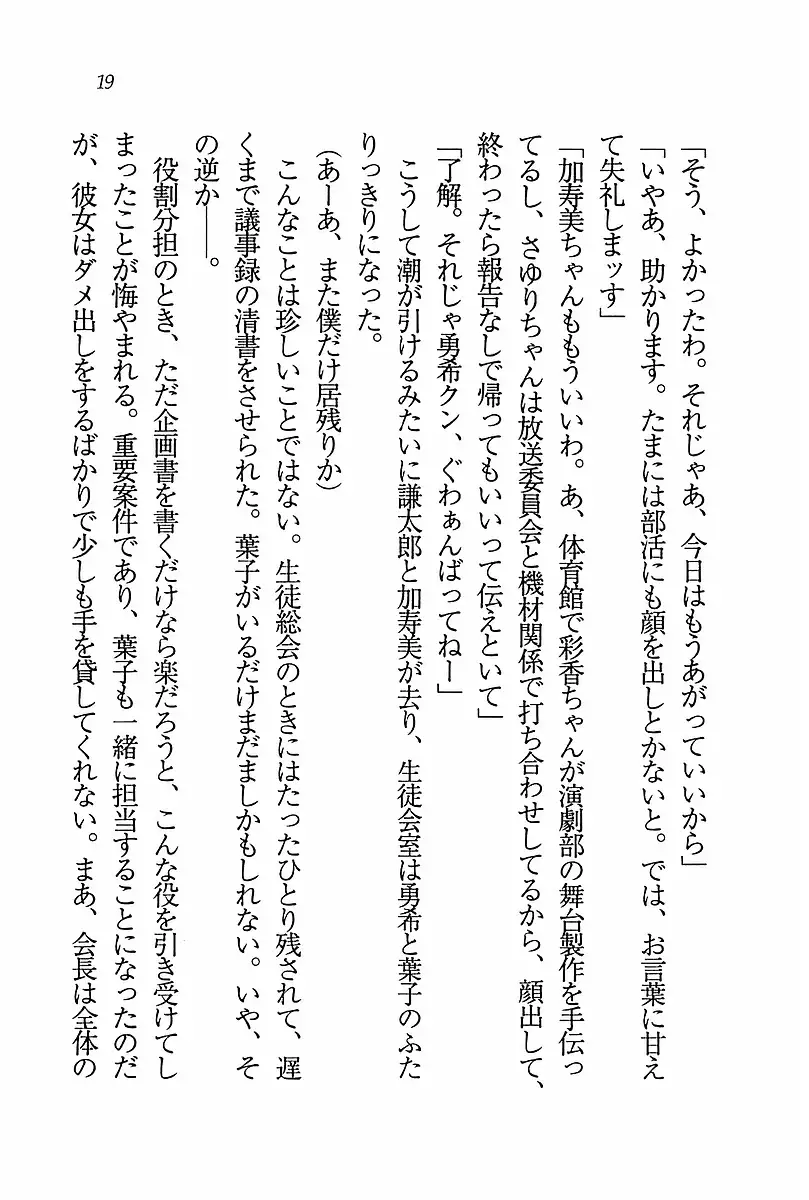 19
「そう、よかったわ。それじゃあ、今日はもうあがっていいから」
「いやあ、助かります。たまには部活にも顔を出しとかないと。では、お言葉に甘え
て失礼しまッす」
「加寿美ちゃんももういいわ。あ、体育館で彩香ちゃんが演劇部の舞台製作を手伝っ
てるし、さゆりちゃんは放送委員会と機材関係で打ち合わせしてるから、顔出して、
終わったら報告なしで帰ってもいいって伝えといて」
「了解。それじゃ勇希クン、ぐわぁんばってねー」
こうして潮が引けるみたいに謙太郎と加寿美が去り、生徒会室は勇希と葉子のふた
りっきりになった。
(あーあ、また僕だけ居残りか)
こんなことは珍しいことではない。生徒総会のときにはたったひとり残されて、遅
くまで議事録の清書をさせられた。葉子がいるだけまだましかもしれない。いや、そ
の逆か――。
役割分担のとき、ただ企画書を書くだけなら楽だろうと、こんな役を引き受けてし
まったことが悔やまれる。重要案件であり、葉子も一緒に担当することになったのだ
が、彼女はダメ出しをするばかりで少しも手を貸してくれない。まあ、会長は全体の